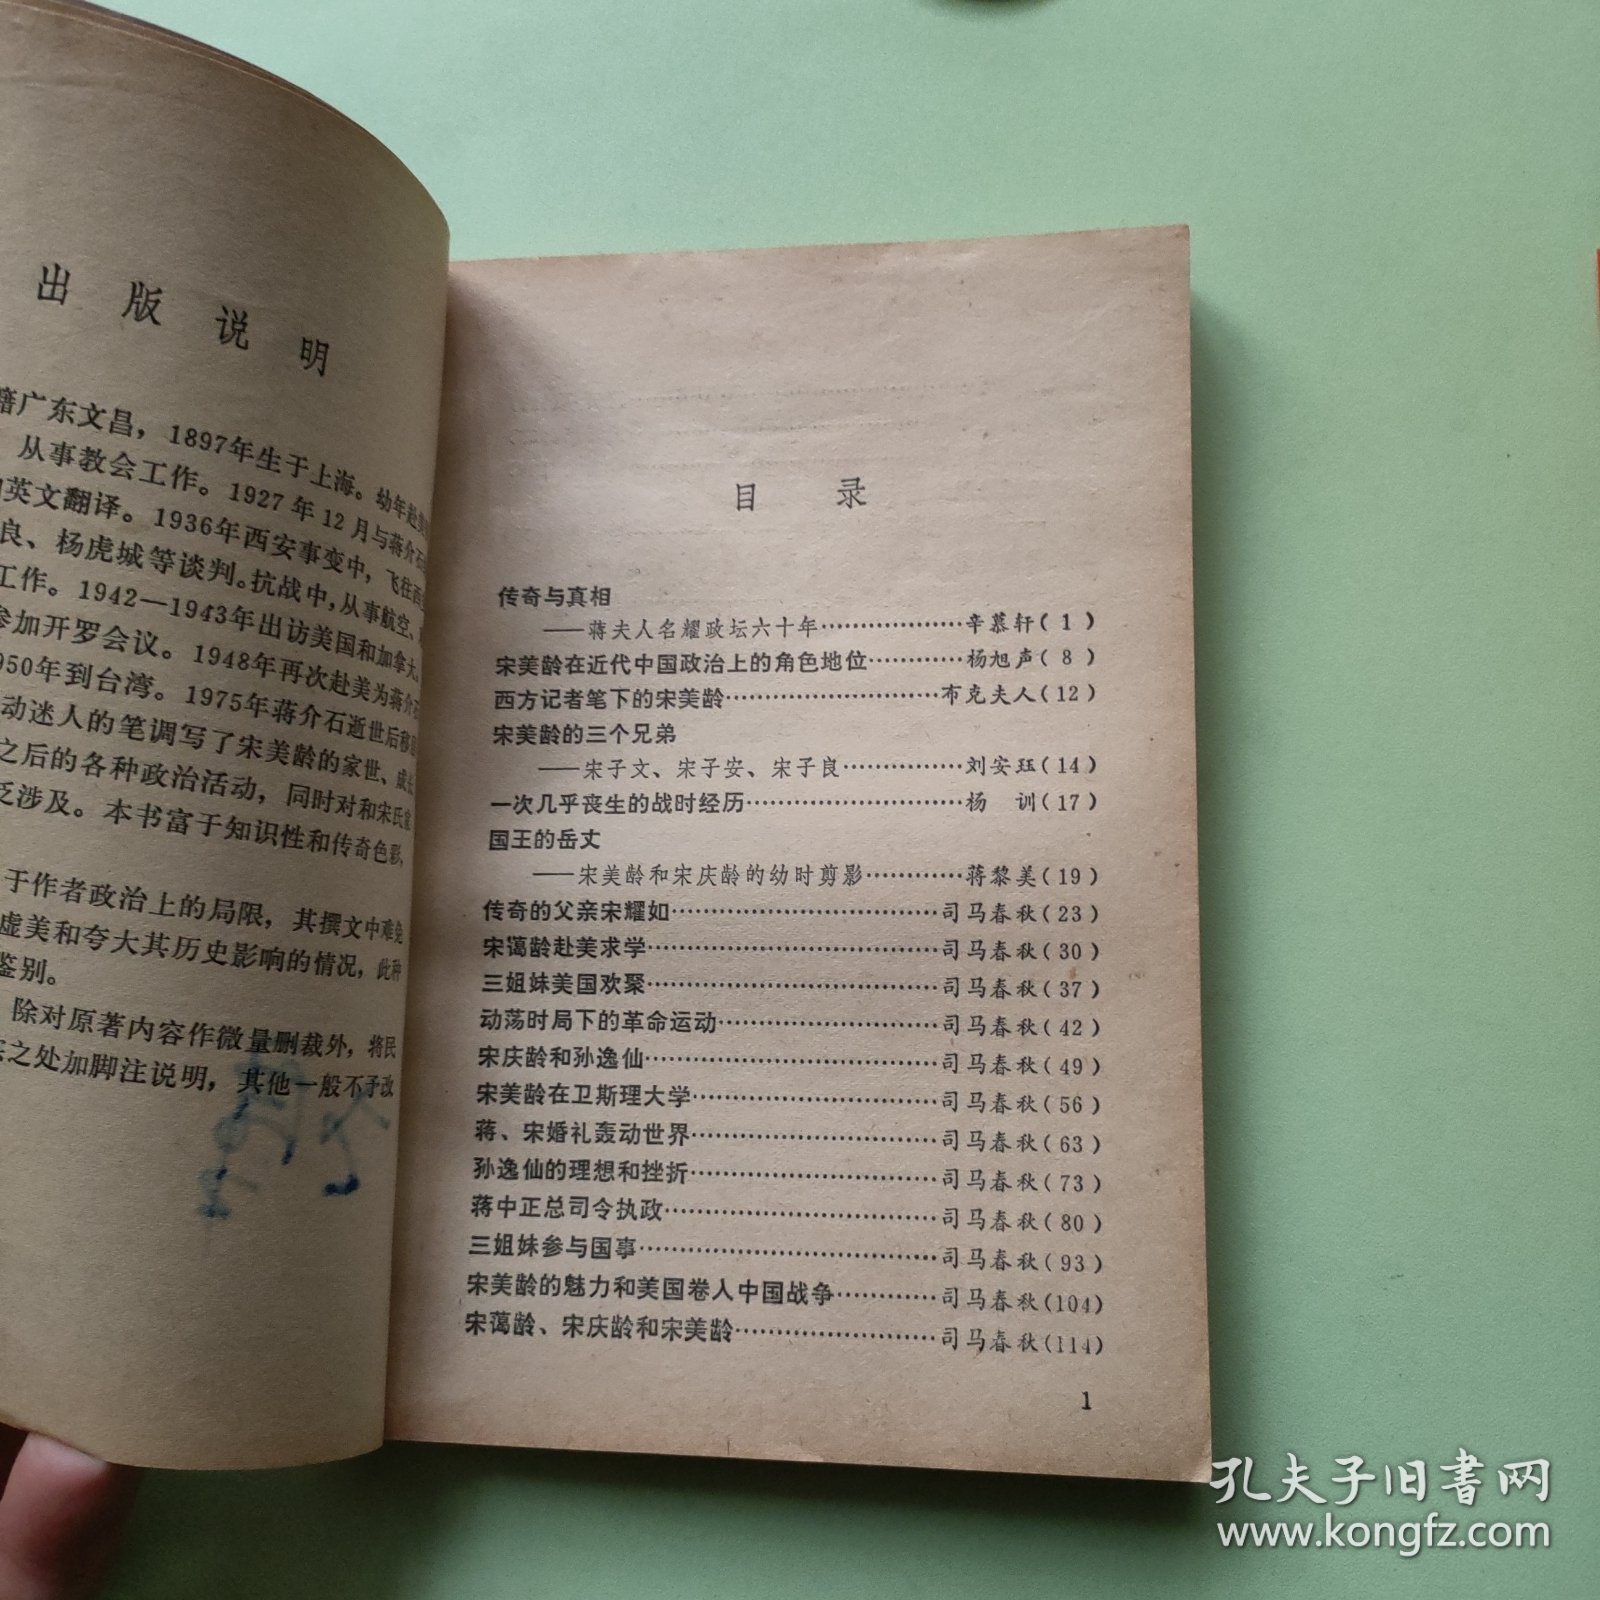 出版说明
籍广东文昌，1897年生于上海。幼年赴
从事教会工作。1927年12月与蒋介石
英文翻译。1936年西安事变中，飞往西
良、杨虎城等谈判。抗战中，从事航空、
工作。1942—1943年出访美国和加拿大。
参加开罗会议。1948年再次赴美为蒋介石
950年到台湾。1975年蒋介石逝世后移
动迷人的笔调写了宋美龄的家世、成长
之后的各种政治活动，同时对和宋氏家
泛涉及。本书富于知识性和传奇色彩，
于作者政治上的局限，其撰文中难免
虚美和夸大其历史影响的情况，此种
鉴别。
除对原著内容作微量删裁外，将民
之处加脚注说明，其他一般不予改
目录
传奇与真相
——蒋夫人名耀政坛六十年………………辛慕轩(1)
宋美龄在近代中国政治上的角色地位…………杨旭声(8)
西方记者笔下的宋美龄………………………布克夫人(12)
宋美龄的三个兄弟
——宋子文、宋子安、宋子良……………刘安珏(14)
一次几乎丧生的战时经历………………………杨 训(17)
国王的岳丈
——宋美龄和宋庆龄的幼时剪影…………蒋黎美(19)
传奇的父亲宋耀如……………………………司马春秋(23)
宋蔼龄赴美求学………………………………司马春秋(30)
三姐妹美国欢聚………………………………司马春秋(37)
动荡时局下的革命运动………………………司马春秋(42)
宋庆龄和孙逸仙………………………………司马春秋(49)
宋美龄在卫斯理大学…………………………司马春秋(56)
蒋、宋婚礼轰动世界…………………………司马春秋(63)
孙逸仙的理想和挫折…………………………司马春秋(73)
蒋中正总司令执政……………………………司马春秋(80)
三姐妹参与国事………………………………司马春秋(93)
宋美龄的魅力和美国卷入中国战争…………司马春秋(104)
宋蔼龄、宋庆龄和宋美龄……………………司马春秋(114)
1
孔夫子旧书网
www.kongfz.com